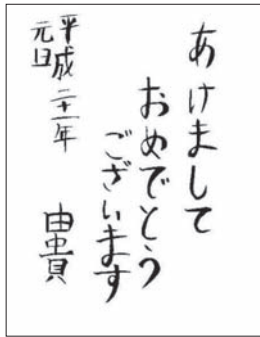 あけまして
おめでとう
ございます
平成二十一年
元旦
由貴